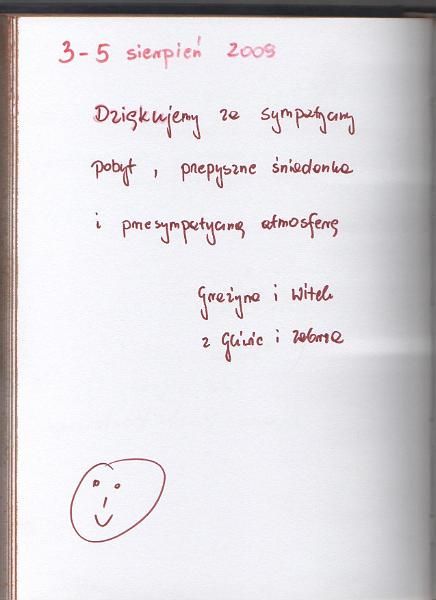 3-5 sierpień 2009
Dziękujemy za sympatyczny
pobyt, przepyszne śniadanka
i przesympatyczną atmosferę
Grażyna i Witek
z Gliwic i Zabrza